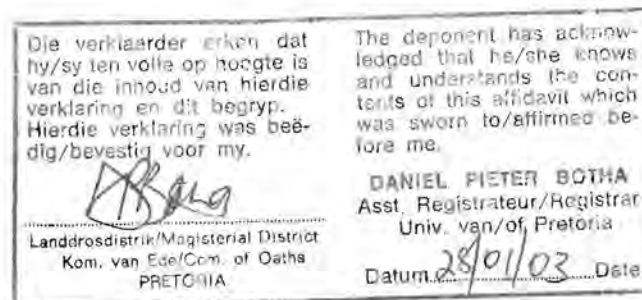 Die verklaarder erken dat
hy/sy ten volle op hoogte is
van die inhoud van hierdie
verklaring en dit begryp.
Hierdie verklaring was beë-
dig/bevestig voor my.
Landdrosdistrik/Magisterial District
Kom. van Ede/Com. of Oaths
PRETORIA
The deponent has acknow-
ledged that he/she knows
and understands the con-
tents of this affidavit which
was sworn to/affirmed be-
fore me.
DANIEL PIETER BOTHA
Asst. Registrateur/Registrar
Univ. van/of Pretoria
Datum 28/01/03 Date